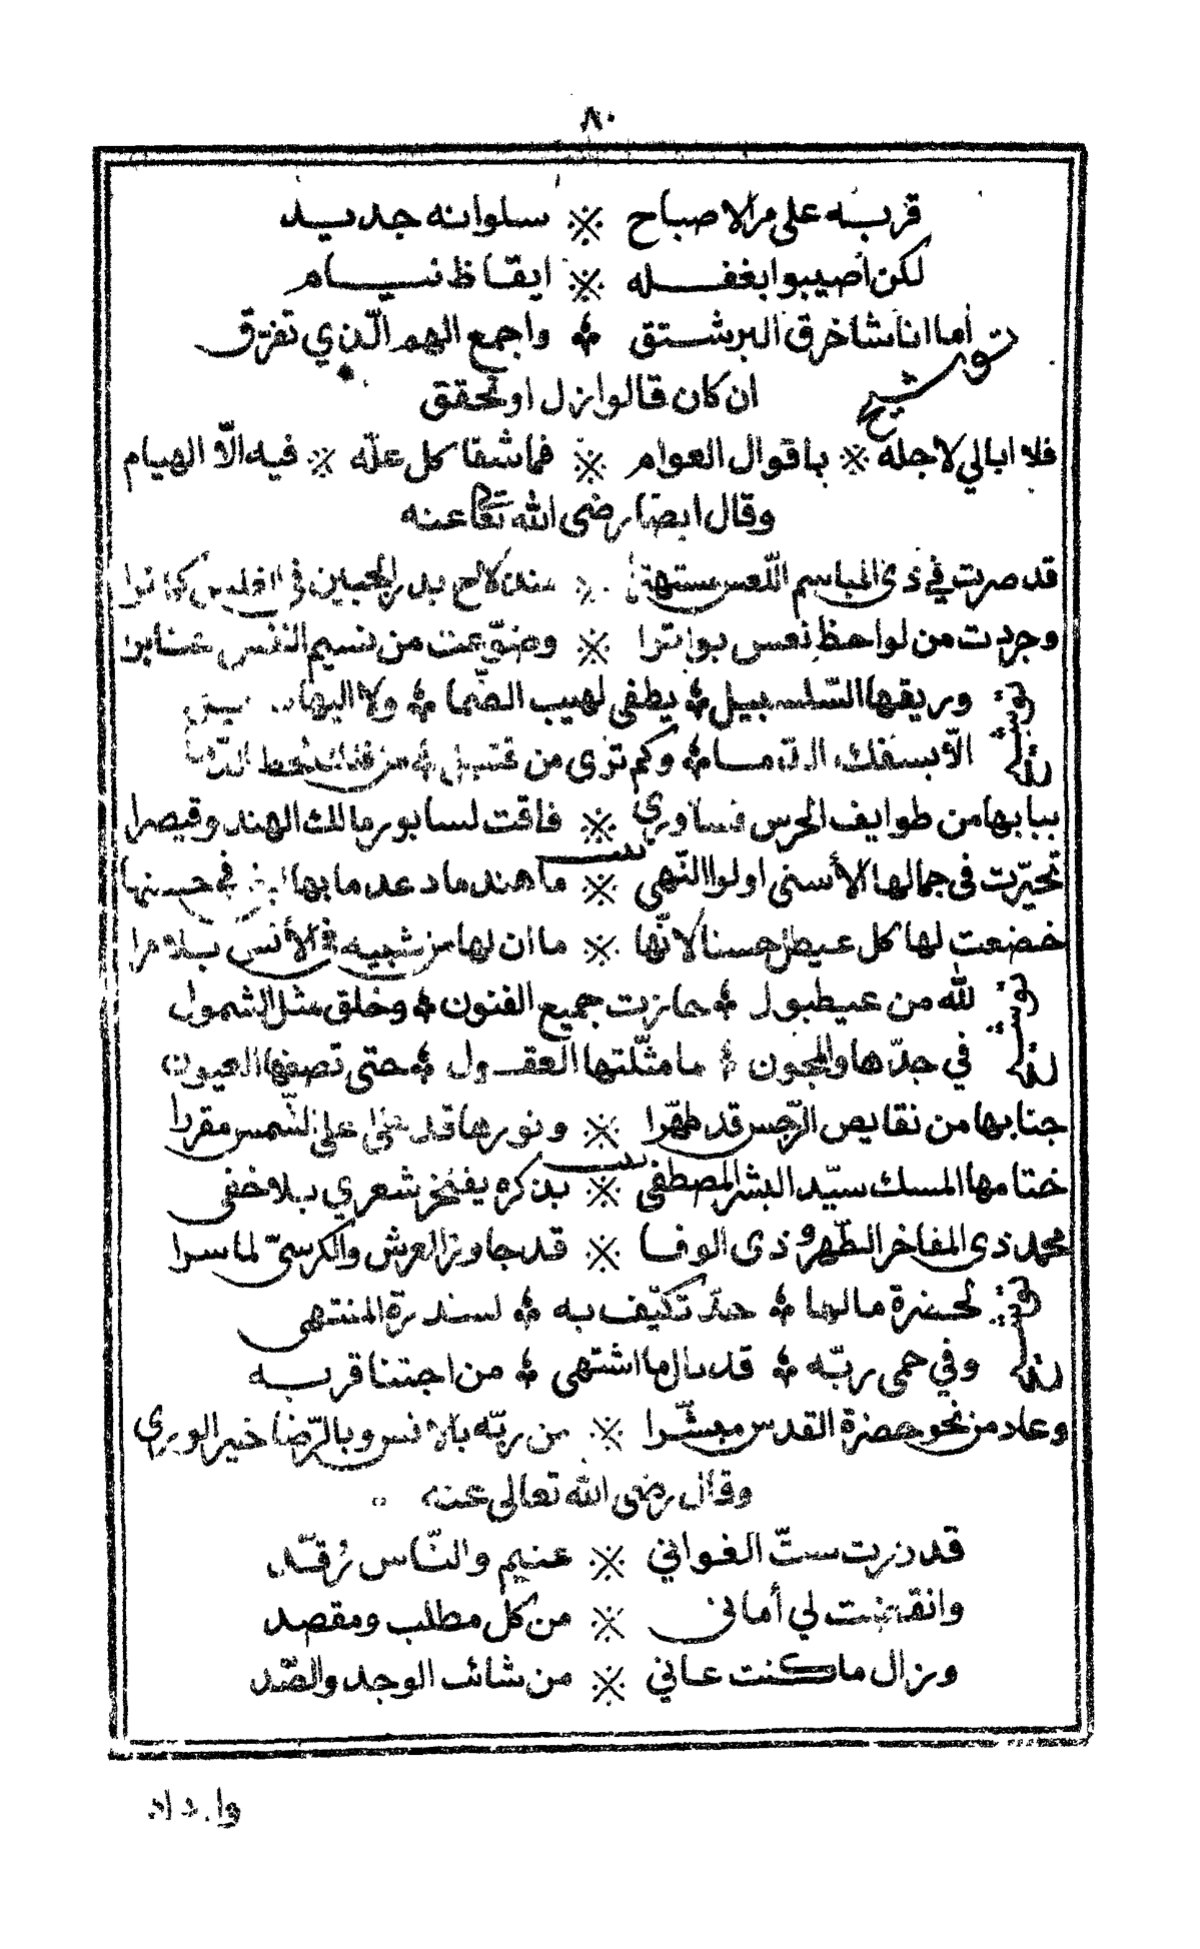 ٨٠
قربه على مر الاصباح ※ سلوانه جديد
لكن اصيبوا بغفله ※ ايقاظ نيام
توشيح اما انا نشا خرق البرشتق ❖ واجمع الهم الّذي تفرّق
ان كان قالوا زل او تحقق
فلا ابالي لاجله ※ باقوال العوام ※ فما شفا كل علّه ※ فيه الّا الهيام
وقال ايضا رضى الله تعا عنه
قد صرت في ذى المباسم اللّعس ※ منذ لاح بدر الجبين في
وجردت من لواحظ نعس بواترا ※ وضوّعت من نسيم النفس عنابرا
توشيح وريقها السّلسبيل ❖ يطفى لهيب الضّما ❖ ولا اليها
الّا بسفك الدّما ❖ وكم ترى من قتيل ❖ من
ببابها من طوايف الحرس قساوري ※ فاقت لسابور مالك الهند وقيصرا
تحيّرت فى جمالها الأسنى اولوا النّهى ※ ما هند ما دعد ما بها في حسنها
خضعت لها كل عيطل حسنا لانّها ※ ما ان لها من شبيه في الأنس بلا مرا
توشيح لله من عيطبول ❖ حازت جميع الفنون ❖ وخلق مثل الشمول
في جدّها والمجون ❖ ما مثّلتها العقول ❖ حتى تصفها العيون
جنابها من نقايص الرّجس قد طهّرا ※ ونورها قد على الشّمس مقررا
ختامها المسك سيّد البشر المصطفى ※ بذكره يفتخر شعري بلا خفى
محمد ذى المفاخر الطّهر وذى الوفا ※ قد جاوز العرش والكرسىّ لما سرا
توشيح لحضرة مالها ❖ حدّ تكيّف به ❖ لسدرة المنتهى
وفي حمى ربّه ❖ قد نال ما اشتهى ❖ من اجتنا قربه
وعاد من نحو حضرة القدس مبشّرا ※ من ربّه بالانس وبالرّضا خير الوري
وقال رضى الله تعالى عنه
قد زرت ستّ الغواني ※ عنيم والنّاس رُقّد
وانقضت لي أمانى ※ من كل مطلب ومقصد
وزال ما كنت عاني ※ من شائب الوجد والصّد